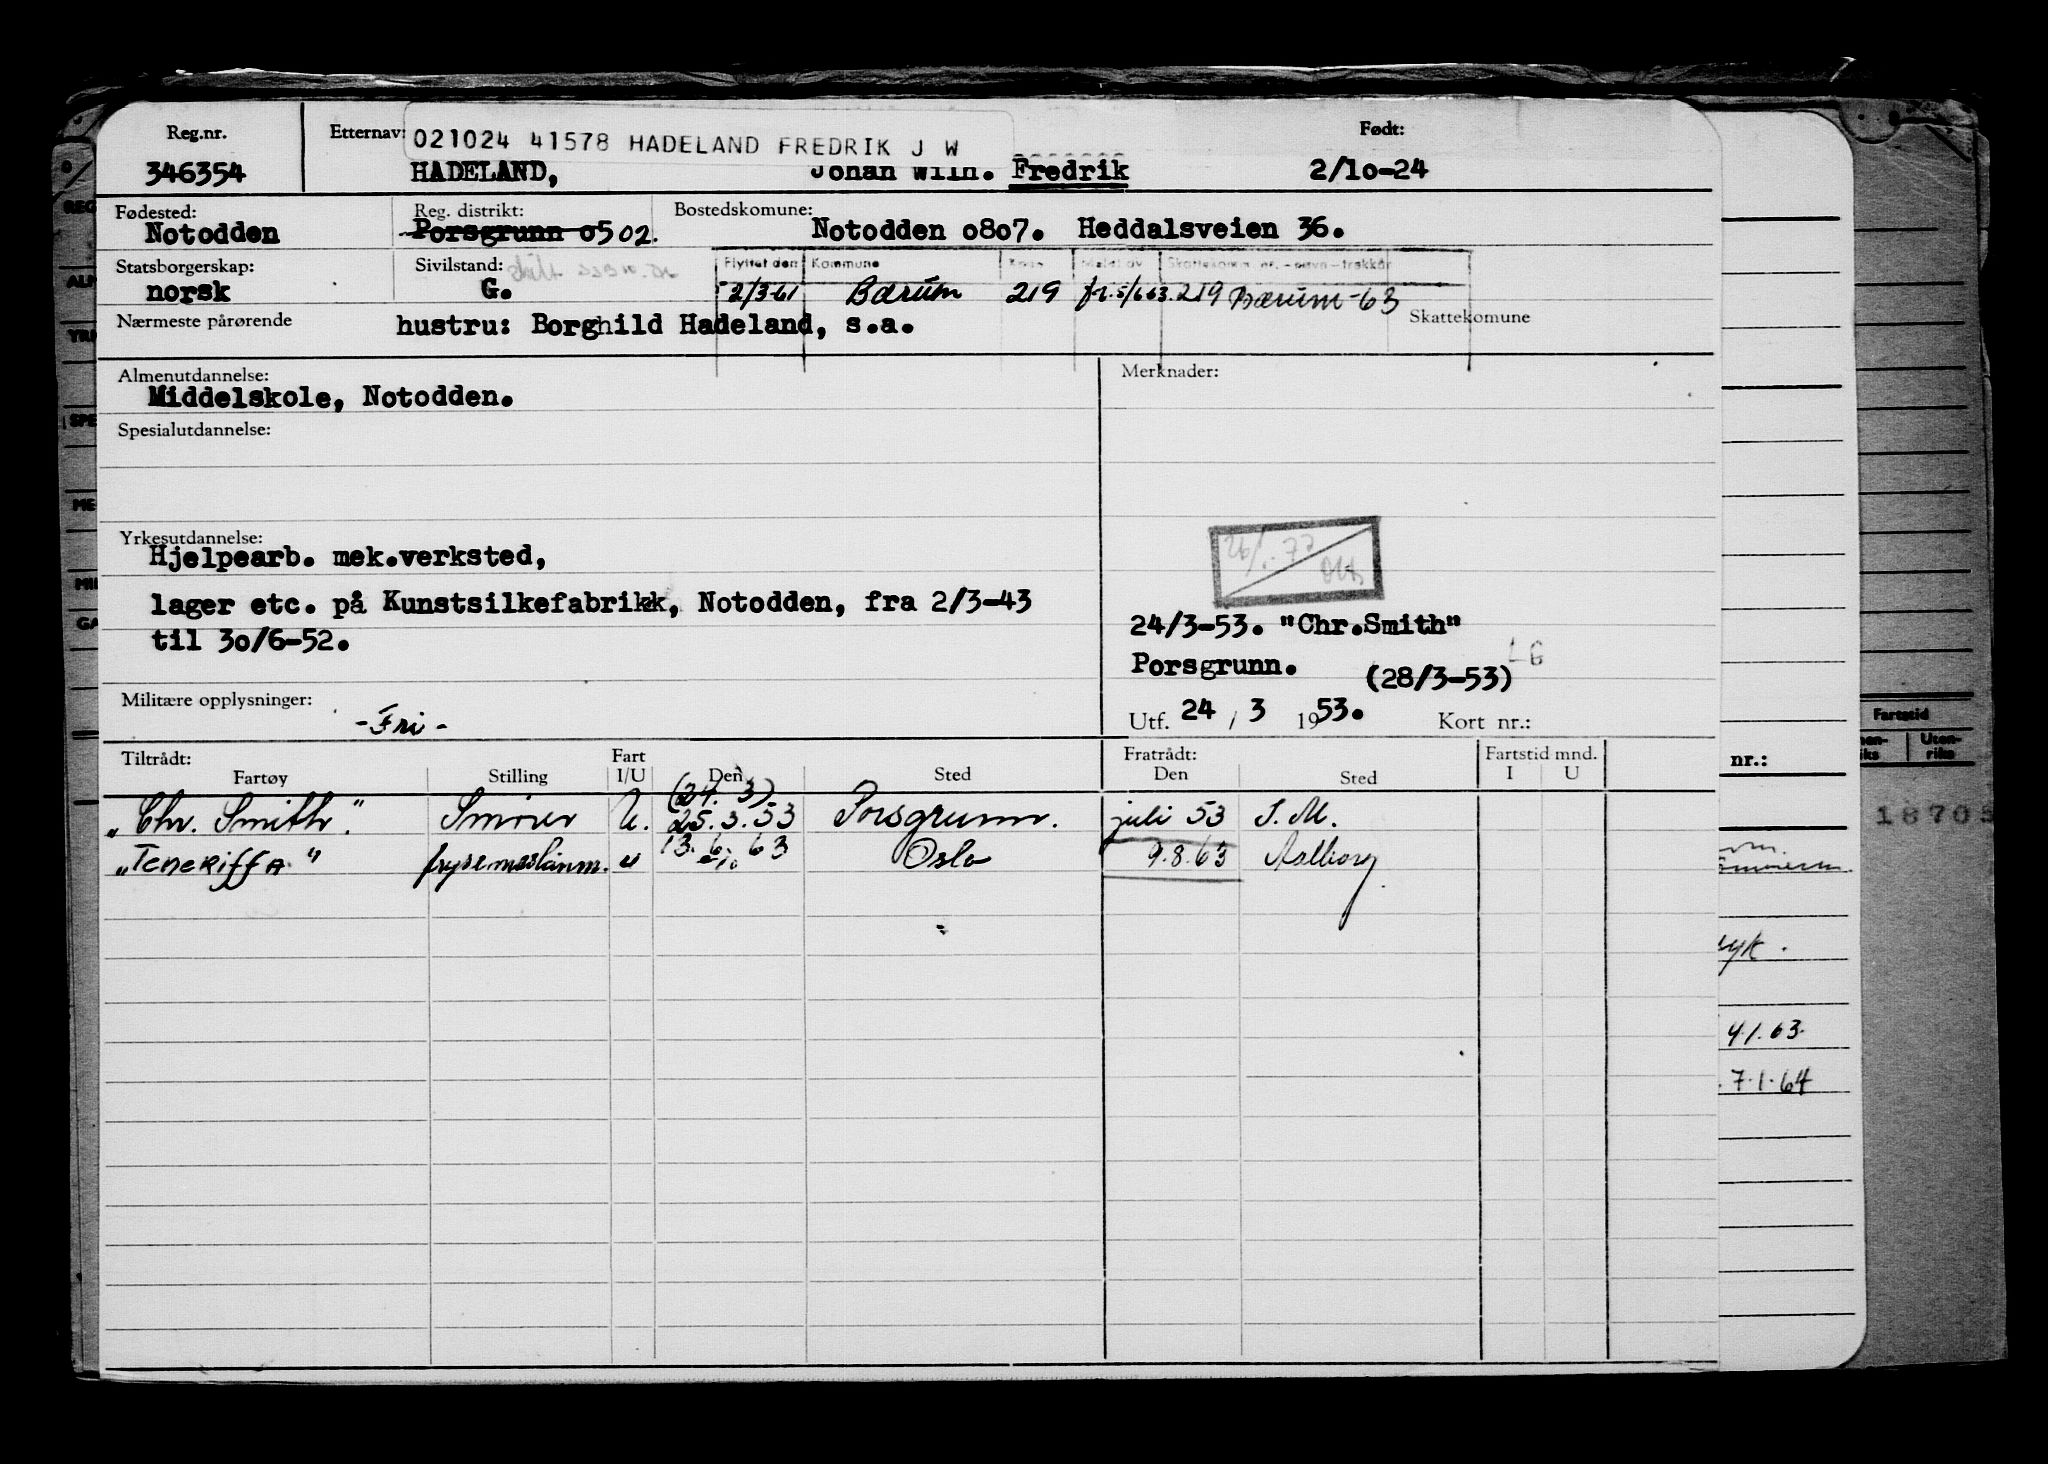 Reg.nr. Etternav: Født:
021024 41578 HADELAND FREDRIK J W
346354 HADELAND, Johan Wilh. Fredrik 2/10-24
Fødested: Reg. distrikt: Bostedskomune:
Notodden Porsgrunn 0502. Notodden 0807. Heddalsveien 36.
Statsborgerskap: Sivilstand: Flyttet den Kommune Meldt av Skattekomm. nr. - navn - trekkår
norsk G. 2/3-61 Bærum 219 fr. 5/6 63. 219 Bærum-63
Nærmeste pårørende hustru: Borghild Hadeland, s.a. Skattekomune
Almenutdannelse: Merknader:
Middelskole, Notodden.
Spesialutdannelse:
Yrkesutdannelse:
Hjelpearb. mek.verksted,
lager etc. på Kunstsilkefabrikk, Notodden, fra 2/3-43
til 30/6-52.
24/3-53. "Chr.Smith"
Porsgrunn. (28/3-53)
Militære opplysninger: -Fri-
Utf. 24 / 3 1953. Kort nr.:
Tiltrådt: Fart Fratrådt: Fartstid mnd.
Fartøy Stilling I/U Den Sted Den Sted I U
(24. 3)
"Chr. Smith." Smører U. 25.3.53 Porsgrunn. juli 53 S. M.
"Teneriffa" u 13.6.63 Oslo 9.8.63 Aalborg
REG
Fartstid
Uten-
riks
nr.:
18705
yk.
4.1.63.
7.1.64